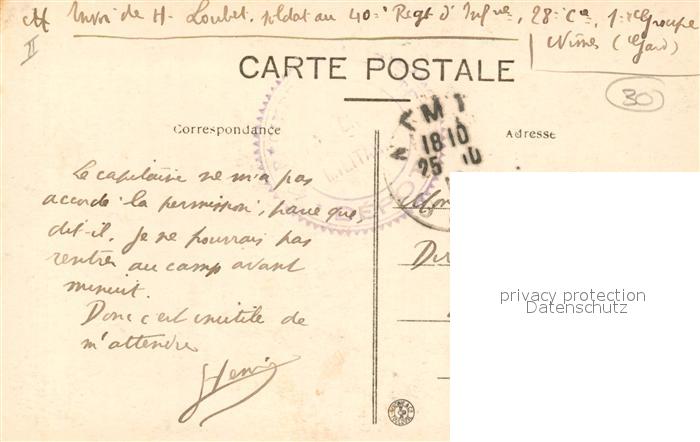 Envoi de H. Loubet, soldat au 40e Regt d'Infrie, 28e Cie, 1er Groupe
Nîmes (Gard)
II
30
CARTE POSTALE
Correspondance
Adresse
18 10
25
Le capitaine ne m'a pas
accordé la permission, parce que,
dit-il, je ne pourrais pas
rentrer au camp avant
minuit.
Donc c'est inutile de
m'attendre
Henri
privacy protection
Datenschutz